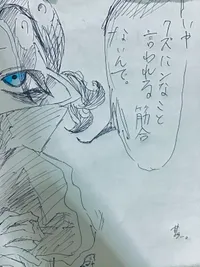 いや
クズにンなこと
言われる筋合
ないんで。